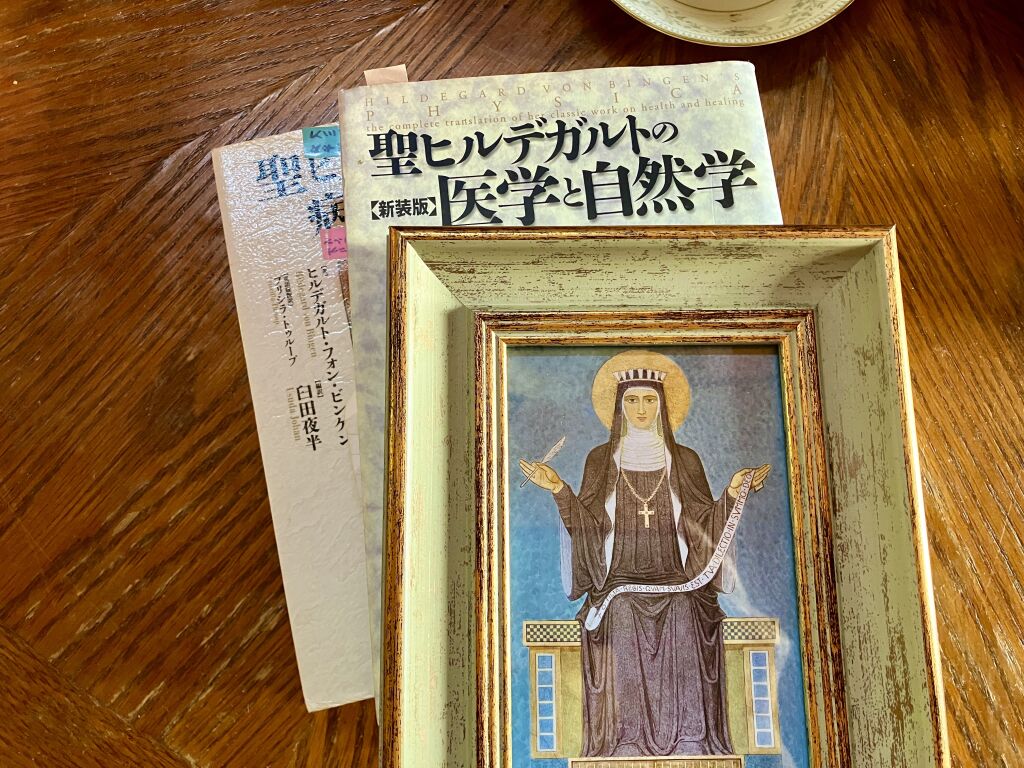 HILDEGARD VON BINGEN'S
PHYSICA
the complete translation of her classic work on health and healing
聖ヒルデガルトの
【新装版】医学と自然学
聖ヒ
ヒルデガルト・フォン・ビンゲン
Hildegard von Bingen
プリシラ・トゥループ
臼田夜半
Usuda Johan
QVAM SVAVIS EST TVA DILECTIO IN